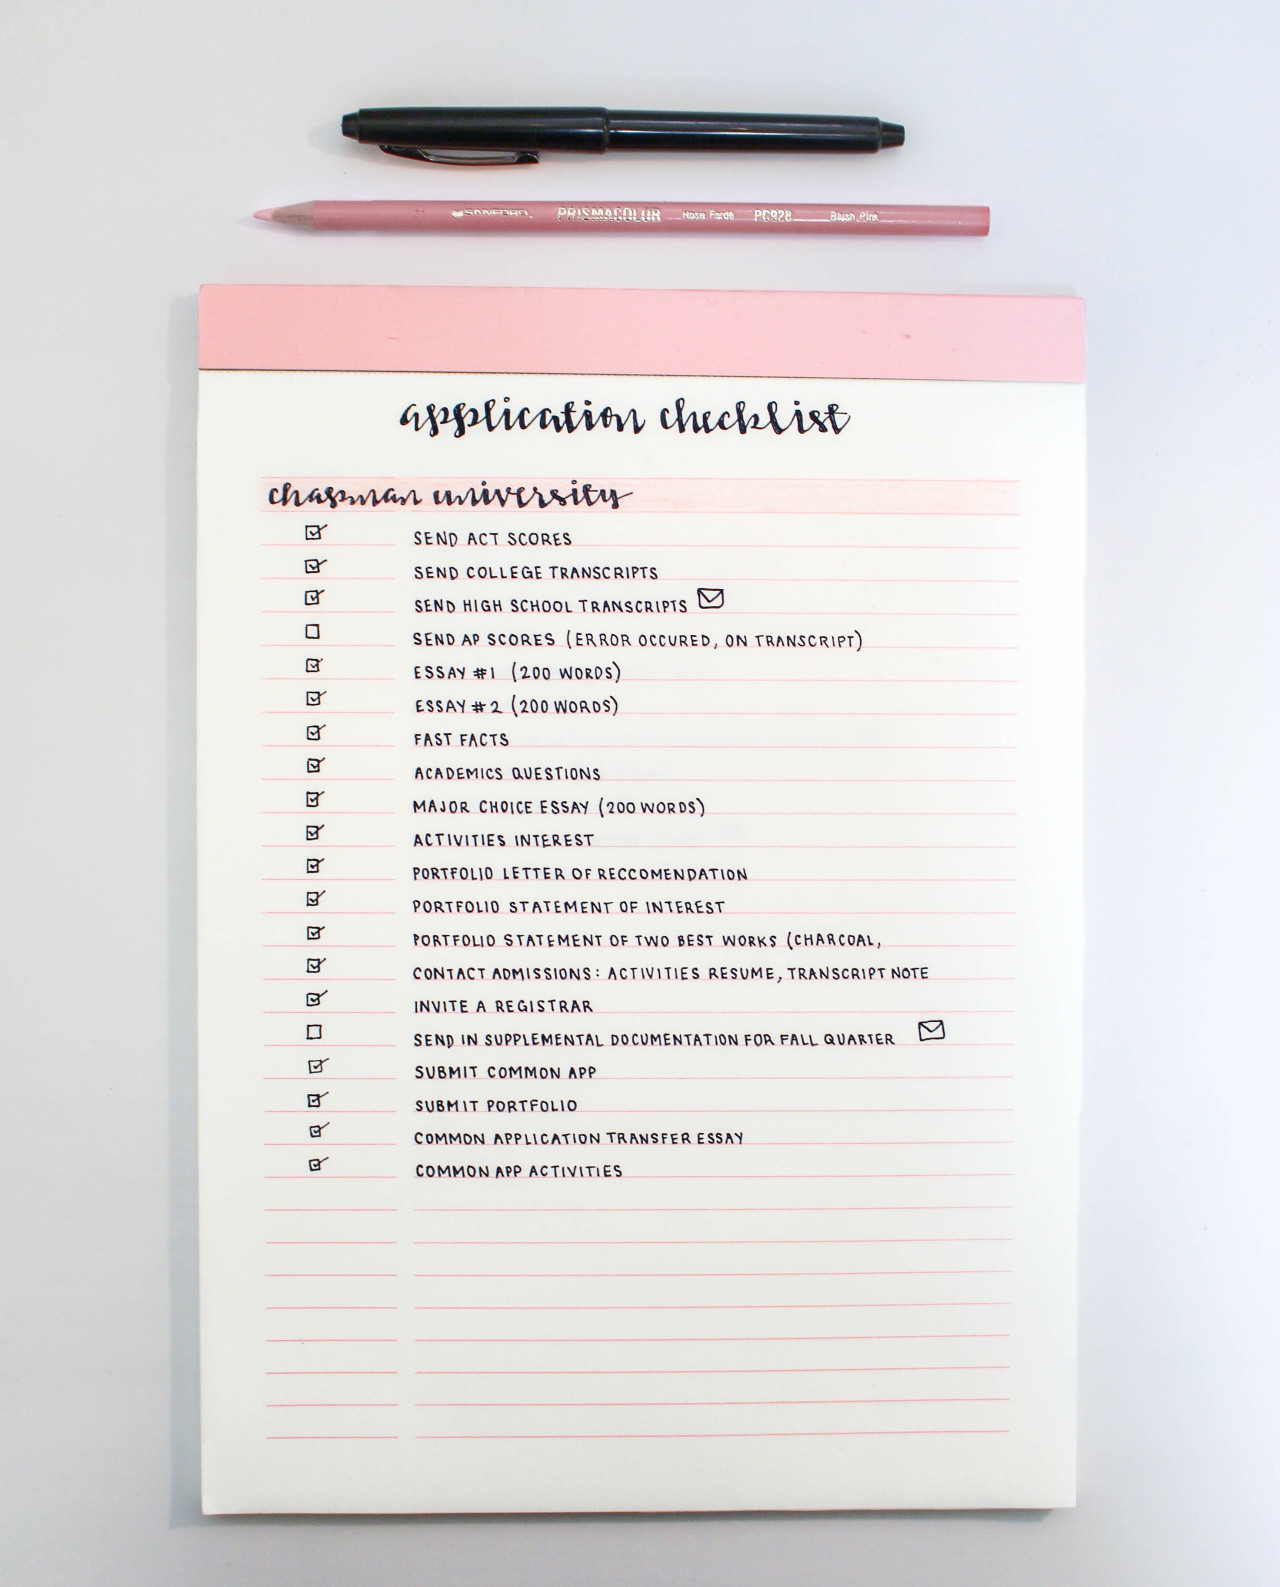 SANFORD PRISMACOLOR Rose Fardé PC928 Blush Pink
application checklist
chapman university
SEND ACT SCORES
SEND COLLEGE TRANSCRIPTS
SEND HIGH SCHOOL TRANSCRIPTS
SEND AP SCORES (ERROR OCCURED, ON TRANSCRIPT)
ESSAY #1 (200 WORDS)
ESSAY #2 (200 WORDS)
FAST FACTS
ACADEMICS QUESTIONS
MAJOR CHOICE ESSAY (200 WORDS)
ACTIVITIES INTEREST
PORTFOLIO LETTER OF RECCOMENDATION
PORTFOLIO STATEMENT OF INTEREST
PORTFOLIO STATEMENT OF TWO BEST WORKS (CHARCOAL,
CONTACT ADMISSIONS: ACTIVITIES RESUME, TRANSCRIPT NOTE
INVITE A REGISTRAR
SEND IN SUPPLEMENTAL DOCUMENTATION FOR FALL QUARTER
SUBMIT COMMON APP
SUBMIT PORTFOLIO
COMMON APPLICATION TRANSFER ESSAY
COMMON APP ACTIVITIES